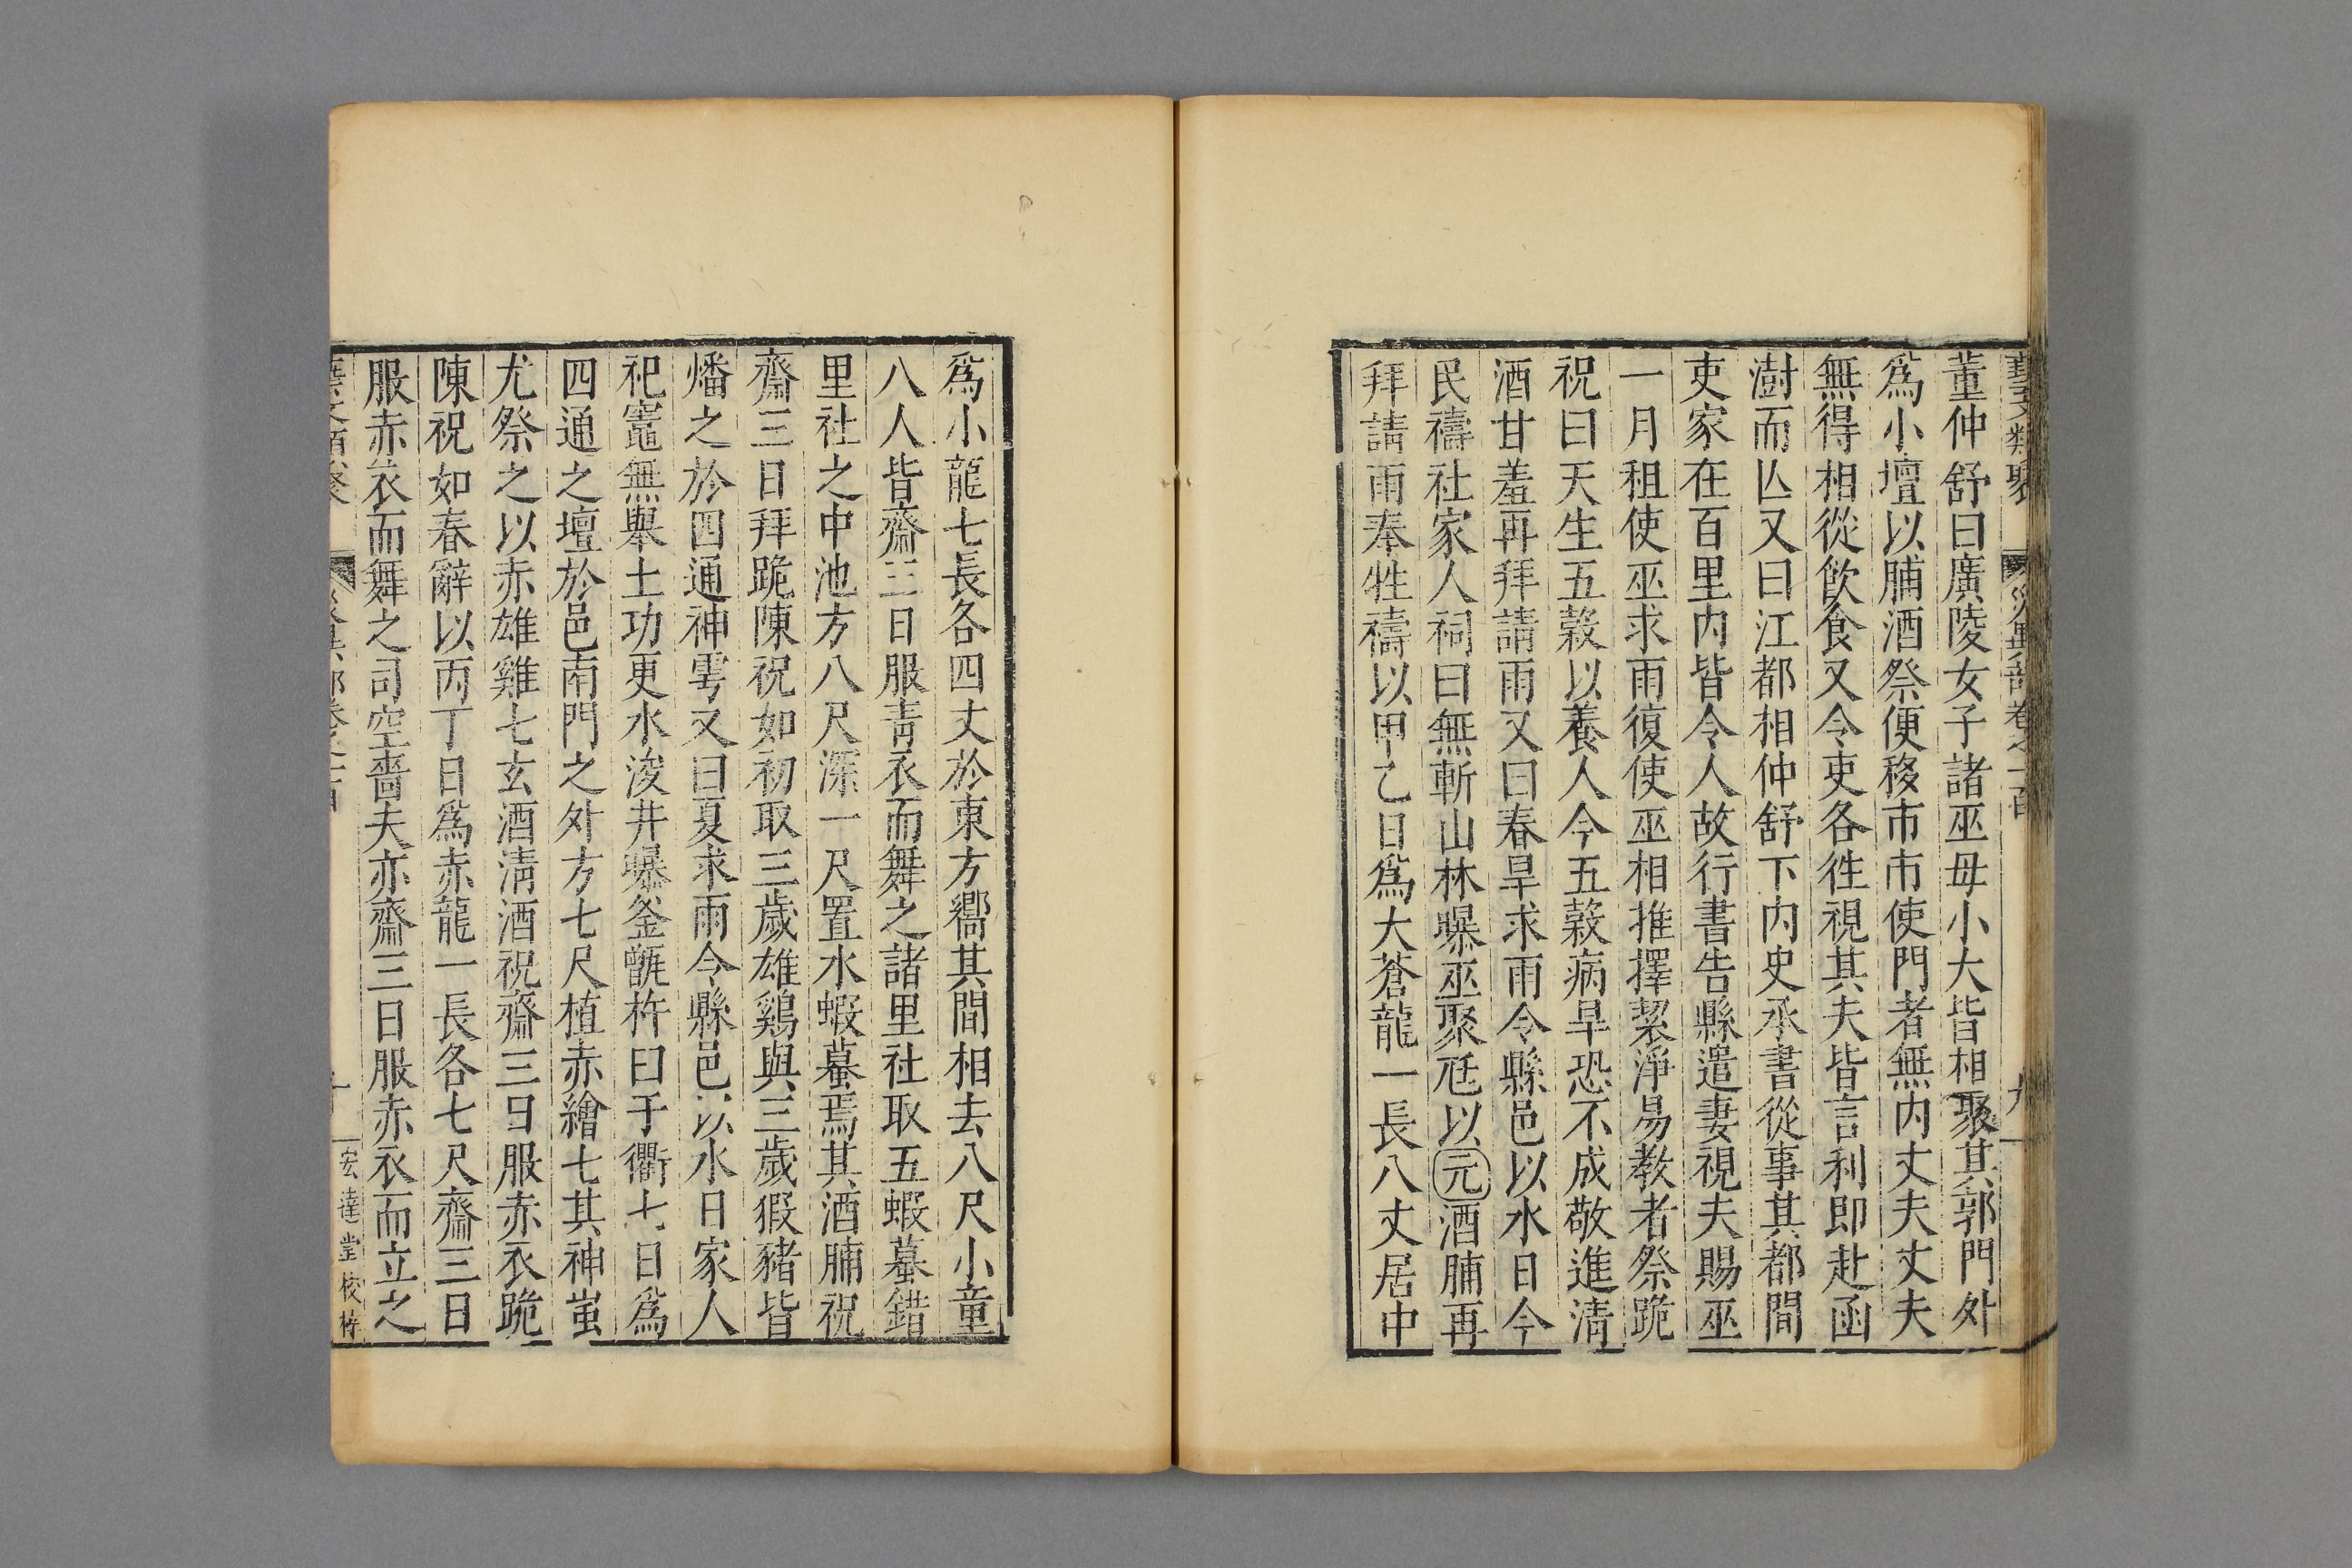 藝文類聚 災異部卷之一百 九
董仲舒曰廣陵女子諸巫毋小大皆相聚其郭門外
爲小壇以脯酒祭便移市市使門者無内丈夫丈夫
無得相從飲食又令吏各徃視其夫皆言利即赴函
澍而亾又曰江都相仲舒下内史承書從事其都間
吏家在百里内皆令人故行書告縣遣妻視夫賜巫
一月租使巫求雨復使巫相推擇絜淨易教者祭跪
祝曰天生五榖以養人今五榖病旱恐不成敬進清
酒甘羞再拜請雨又曰春旱求雨令縣邑以水日令
民禱社家人祠曰無斬山林曝巫聚尫以元酒脯再
拜請雨奉牲禱以甲乙日爲大蒼龍一長八丈居中
爲小龍七長各四丈於東方嚮其間相去八尺小童
八人皆齋三日服青衣而舞之諸里社取五蝦蟇錯
里社之中池方八尺深一尺置水蝦蟇焉其酒脯祝
齋三日拜跪陳祝如初取三歲雄鷄與三歲猳豬皆
燔之於四通神雩又曰夏求雨令縣邑以水日家人
祀竈無舉土功更水浚井曝釜甑杵臼于衢七日爲
四通之壇於邑南門之外方七尺植赤繒七其神蚩
尤祭之以赤雄雞七玄酒清酒祝齋三日服赤衣跪
陳祝如春辭以丙丁日爲赤龍一長各七尺齋三日
服赤衣而舞之司空嗇夫亦齋三日服赤衣而立之
宏達堂校栞